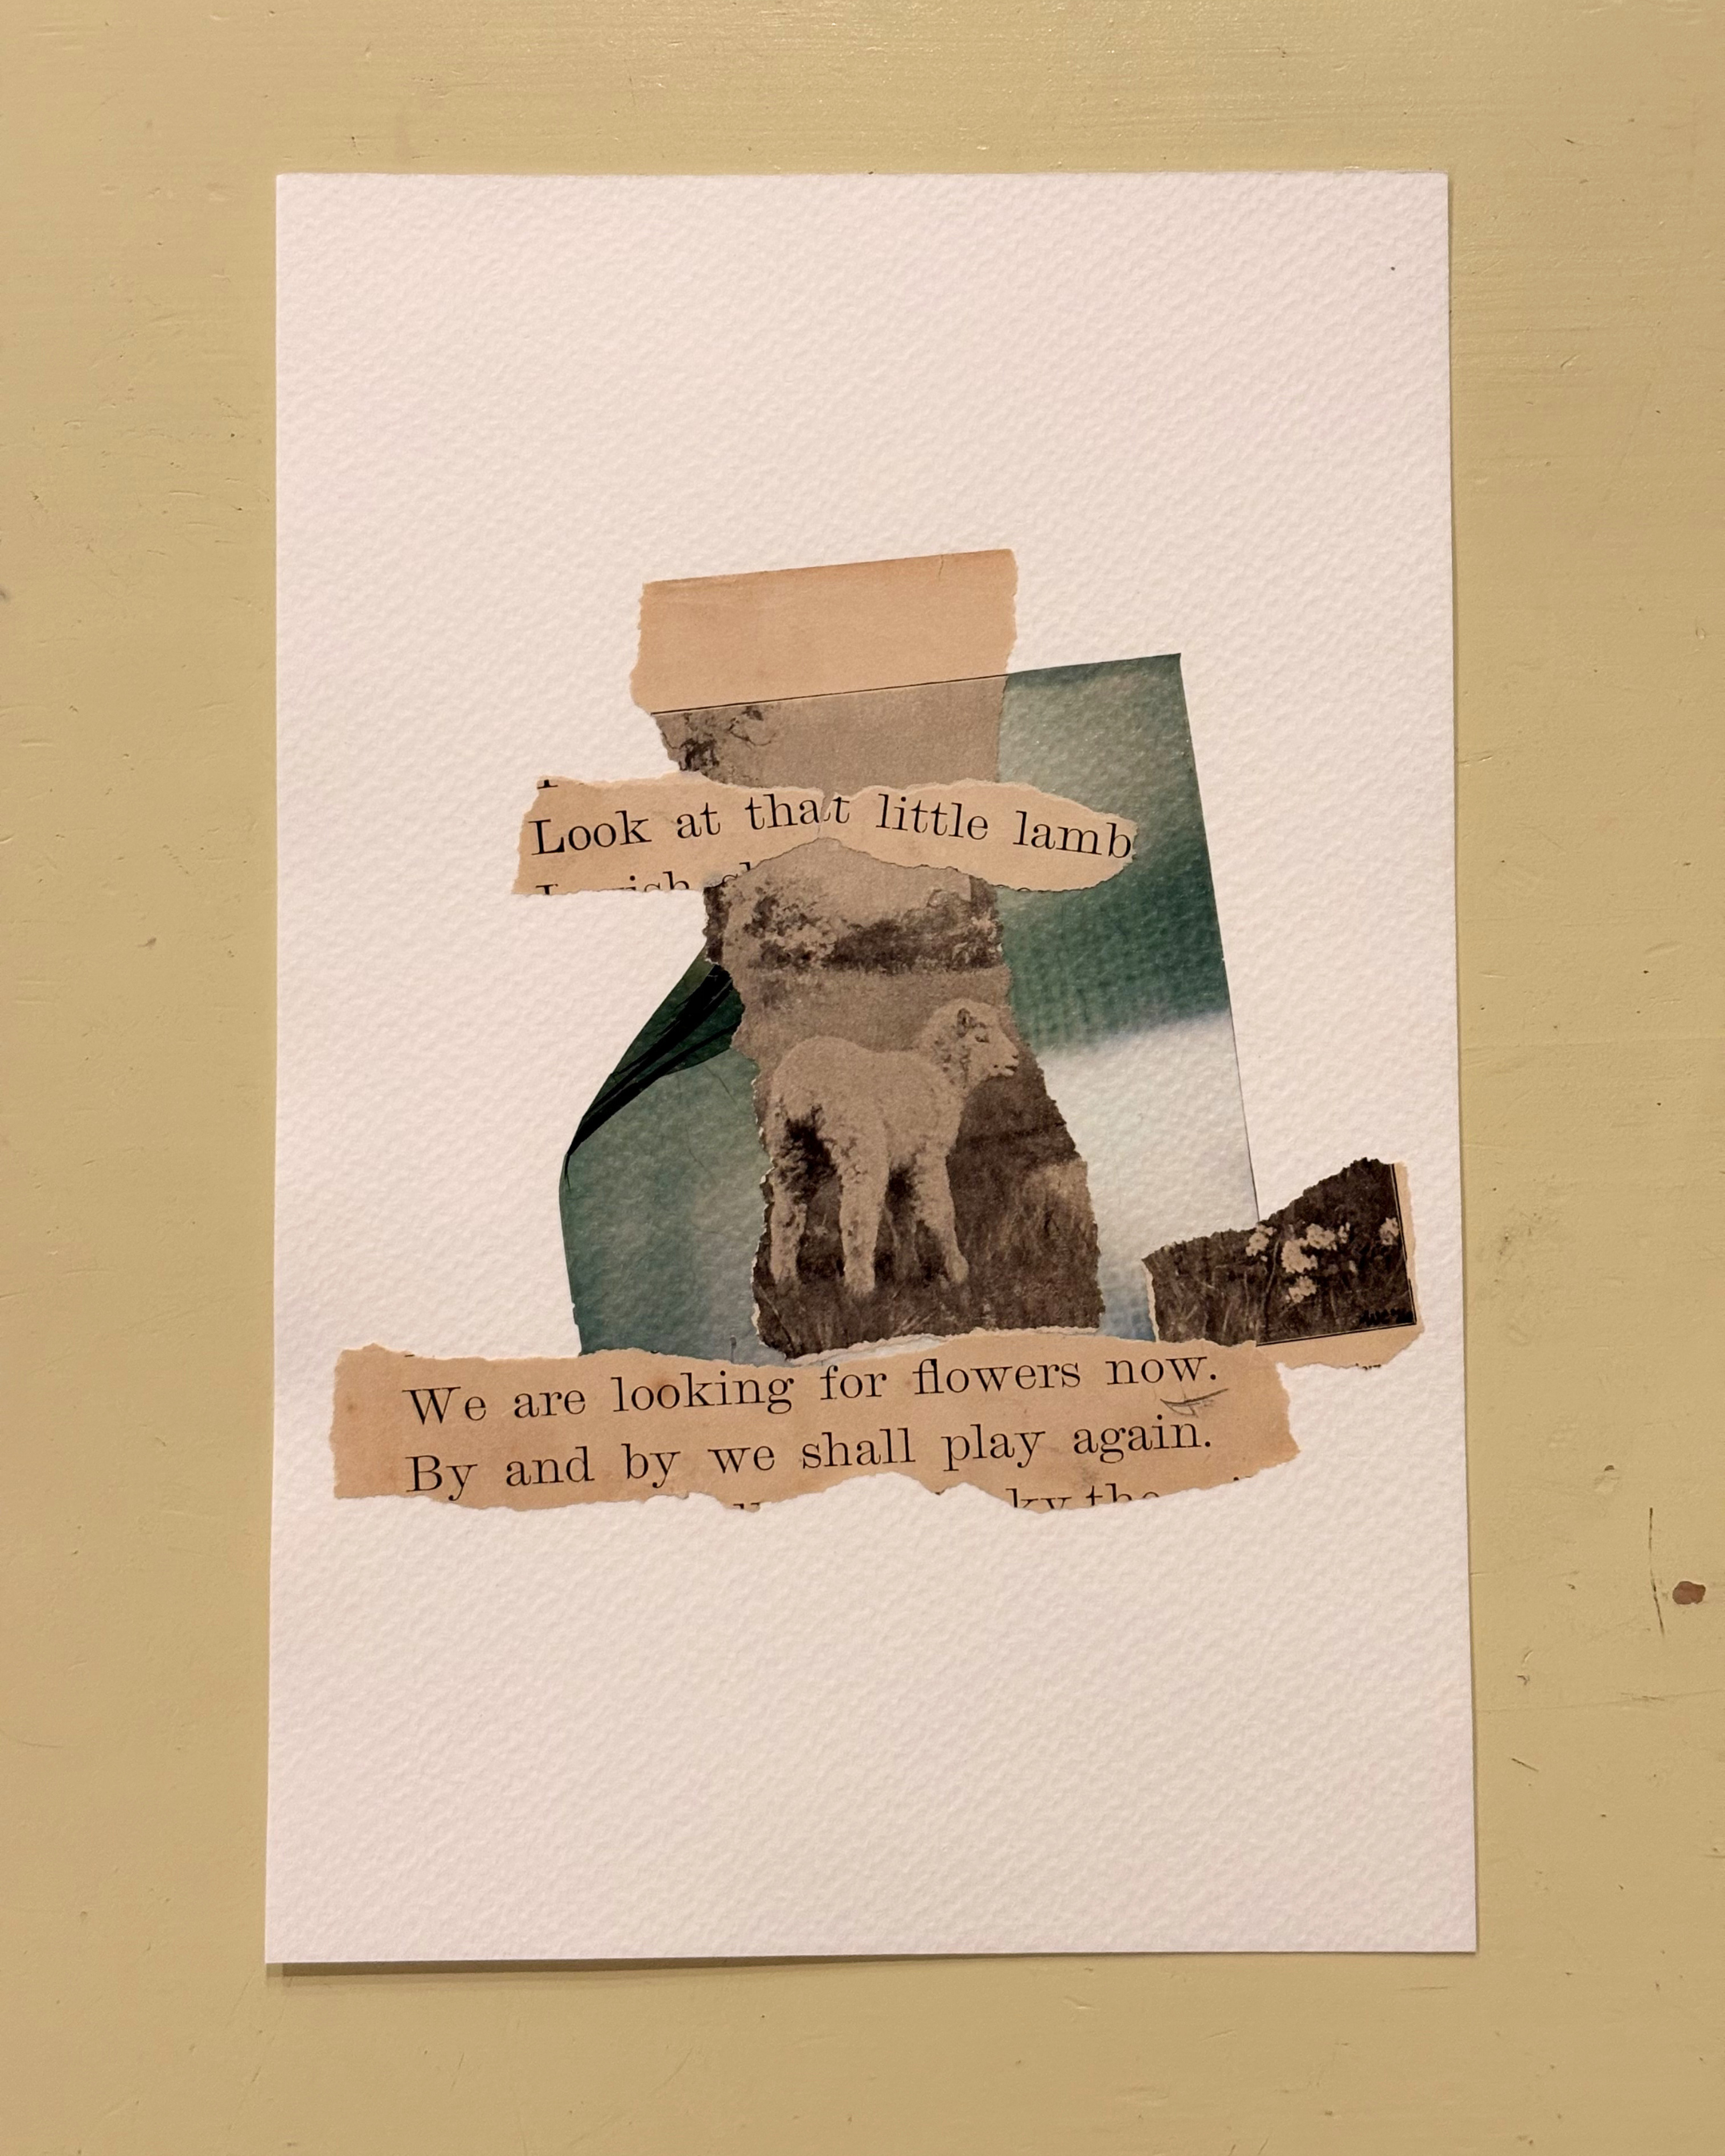 Look at that little lamb
We are looking for flowers now.
By and by we shall play again.